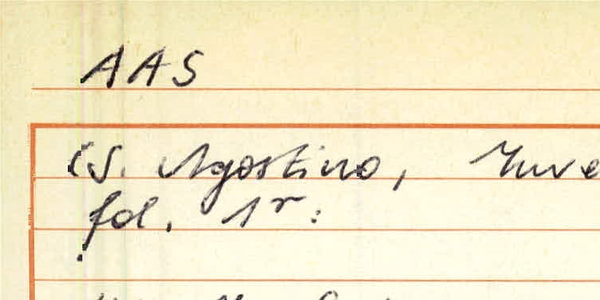 AAS
(S. Agostino, Inve
fol. 1r: